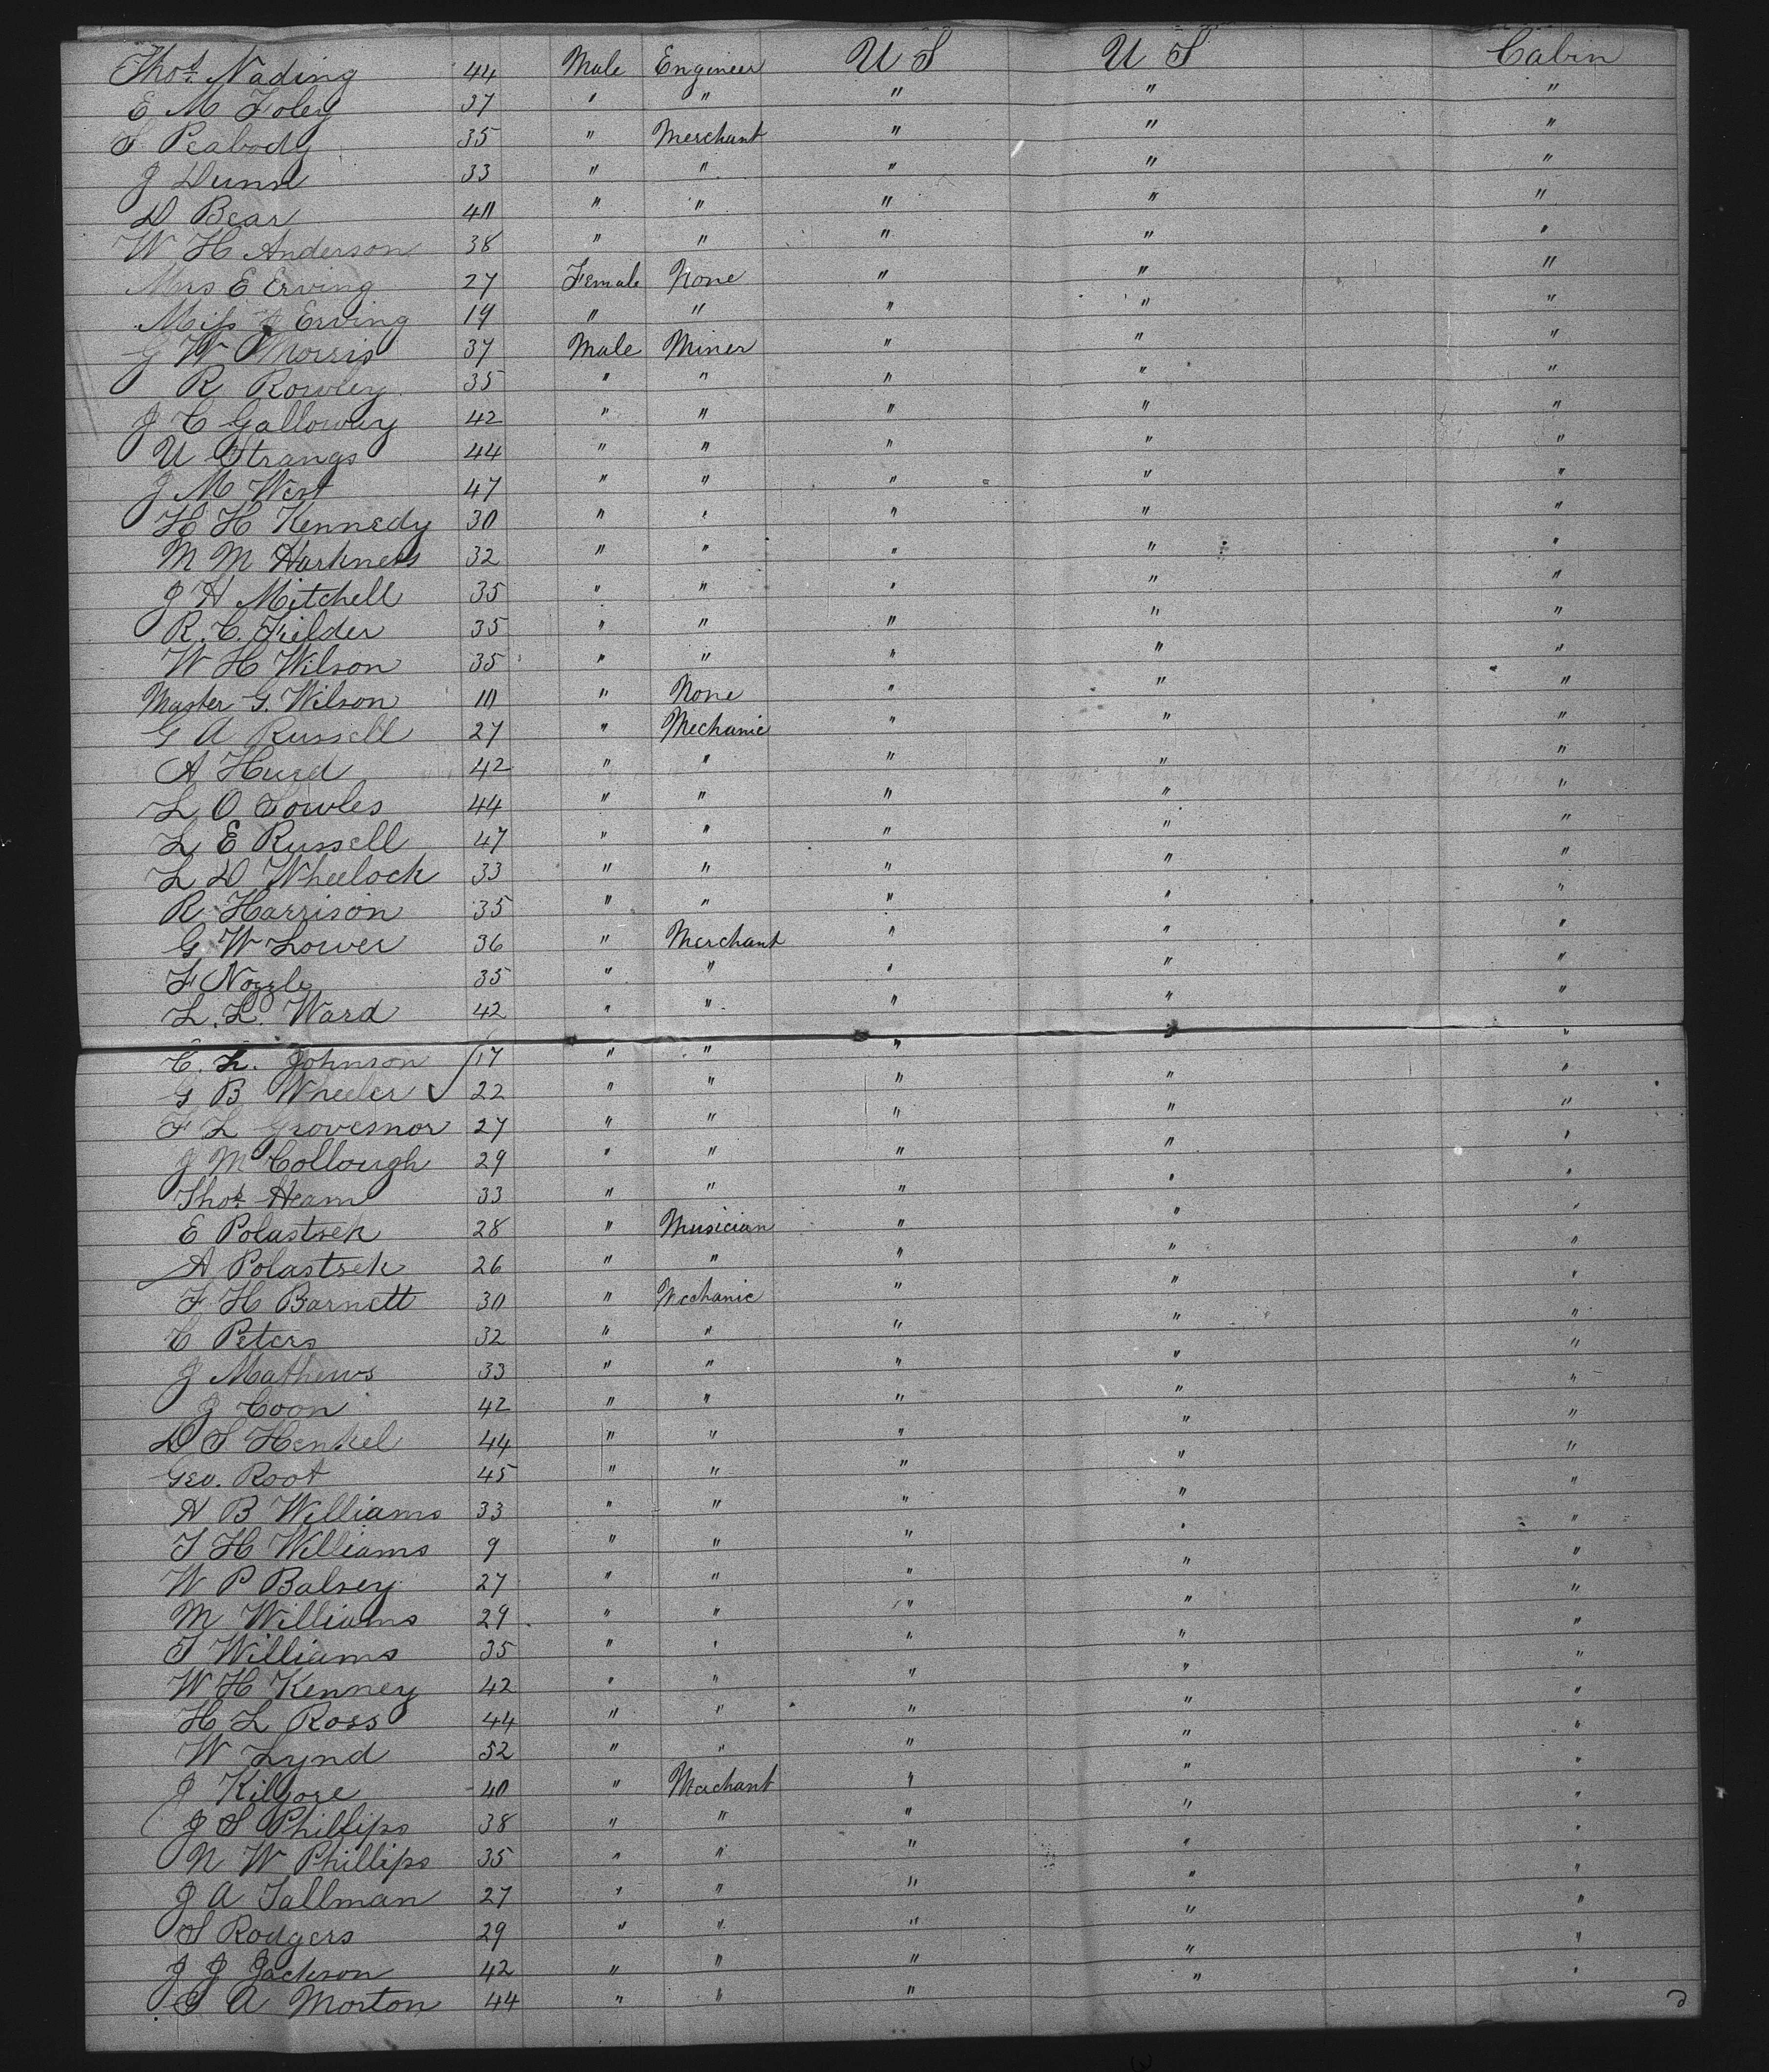 Thos Nading 44 Male Engineer U S U S Cabin
E M Foley 37 " " " " "
S Peabody 35 " Merchant " " "
J Dunn 33 " " " " "
D Bear 40 " " " " "
W H Anderson 38 " " " " "
Mrs E Erving 27 Female None " " "
Miss J Erving 19 " " " " "
G W Morris 37 Male Miner " " "
R Rowley 35 " " " " "
J C Galloway 42 " " " " "
U Strangs 44 " " " " "
J M West 47 " " " " "
H H Kennedy 30 " " " " "
M M Harkness 32 " " " " "
J H Mitchell 35 " " " " "
R. C. Fielder 35 " " " " "
W H Wilson 35 " " " " "
Master G. Wilson 10 " None " " "
G A Russell 27 " Mechanic " " "
A Hurd 42 " " " " "
L O Fowles 44 " " " " "
L E Russell 47 " " " " "
L D Wheelock 33 " " " " "
R Harrison 35 " " " " "
G. W Lower 36 " Merchant " " "
F Nozzle 35 " " " " "
L. L. Ward 42 " " " " "
C. L. Johnson 17 " " " "
G B Wheeler 22 " " " " "
F L Grovesnor 27 " " " " "
J McCollough 29 " " " " "
Thos Heam 33 " " " " "
E Polastrek 28 " Musician " " "
A Polastrek 26 " " " " "
F H Barnett 30 " Mechanic " " "
C Peters 32 " " " " "
J Mathews 33 " " " " "
J Coon 42 " " " " "
D S Henkel 44 " " " " "
Geo. Root 45 " " " " "
H B Williams 33 " " " " "
T H Williams 9 " " " " "
W P Balsey 27 " " " " "
M Williams 29 " " " " "
T Williams 35 " " " " "
W H Kenney 42 " " " " "
H L Ross 44 " " " " "
W Lynd 52 " " " " "
J Kilgore 40 " Merchant " " "
J S Phillips 38 " " " " "
N W Phillips 35 " " " " "
J A Tallman 27 " " " " "
S Rodgers 29 " " " " "
J J Jackson 42 " " " " "
S A Morton 44 " " " " "